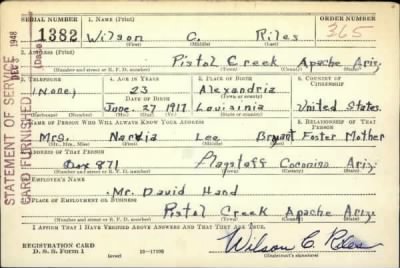 SERIAL NUMBER 1. NAME (Print) ORDER NUMBER
1382 Wilson C. Riles 365
(First) (Middle) (Last)
2. ADDRESS (Print)
Pistol Creek Apache Ariz.
(Number and street or R. F. D. number) (Town) (County) (State)
3. TELEPHONE 4. AGE IN YEARS 5. PLACE OF BIRTH 6. COUNTRY OF CITIZENSHIP
(None) 23 Alexandria
DATE OF BIRTH (Town or county)
June 27 1917 Louisinia United States
(Exchange) (Number) (Mo.) (Day) (Yr.) (State or country)
7. NAME OF PERSON WHO WILL ALWAYS KNOW YOUR ADDRESS 8. RELATIONSHIP OF THAT PERSON
Mrs. Narvia Lee Bryant Foster Mother
(Mr., Mrs., Miss) (First) (Middle) (Last)
9. ADDRESS OF THAT PERSON
Box 871 Flagstaff Coconino Ariz.
(Number and street or R. F. D. number) (Town) (County) (State)
10. EMPLOYER'S NAME
Mr. David Hand
11. PLACE OF EMPLOYMENT OR BUSINESS
Pistol Creek Apache Ariz.
(Number and street or R. F. D. number) (Town) (County) (State)
I AFFIRM THAT I HAVE VERIFIED ABOVE ANSWERS AND THAT THEY ARE TRUE.
REGISTRATION CARD
D. S. S. FORM 1 (over) Wilson C. Riles
(Registrant's signature)
STATEMENT OF SERVICE
CARD FURNISHED
1948
(Date)